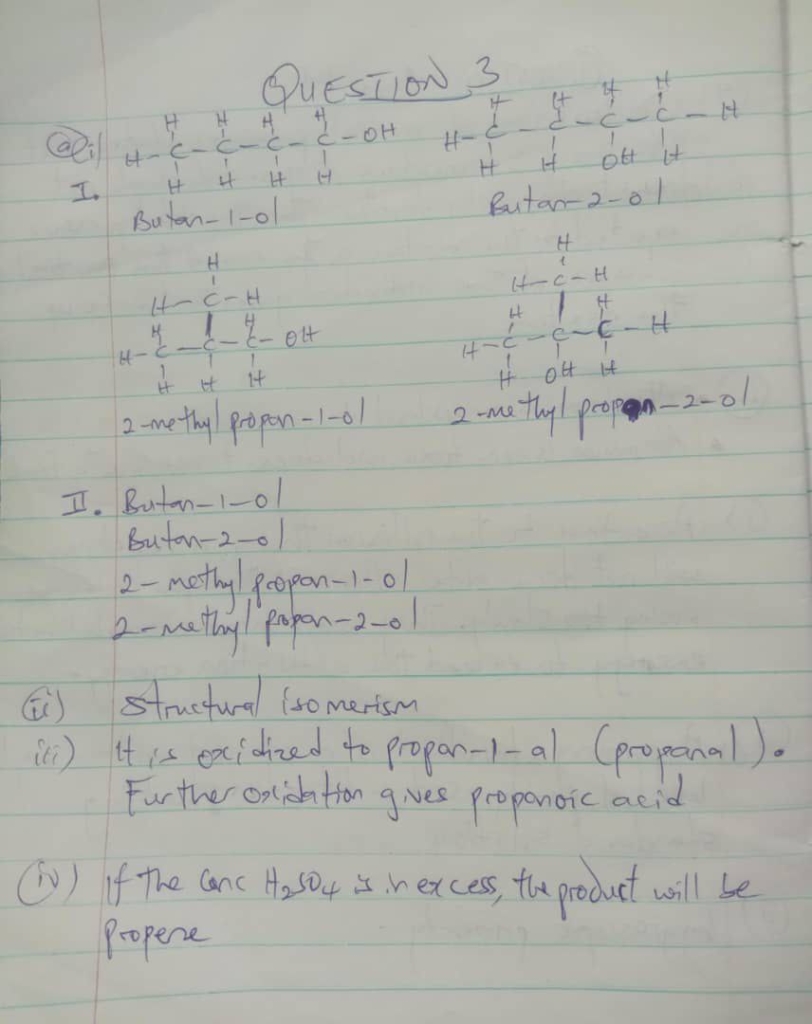 QUESTION 3
(a)(i)
I.
H H H H
H-C-C-C-C-OH
H H H H
Butan-1-ol
H H H H
H-C-C-C-C-H
H H OH H
Butan-2-ol
H
H-C-H
H H
H-C-C-C-OH
H H H
2-methyl propan-1-ol
H
H-C-H
H H
H-C-C-C-H
H OH H
2-methyl propan-2-ol
II. Butan-1-ol
Butan-2-ol
2-methyl propan-1-ol
2-methyl propan-2-ol
(ii) Structural isomerism
iii) It is oxidized to propan-1-al (propanal).
Further oxidation gives propanoic acid
(iv) If the conc H₂SO₄ is in excess, the product will be
propene